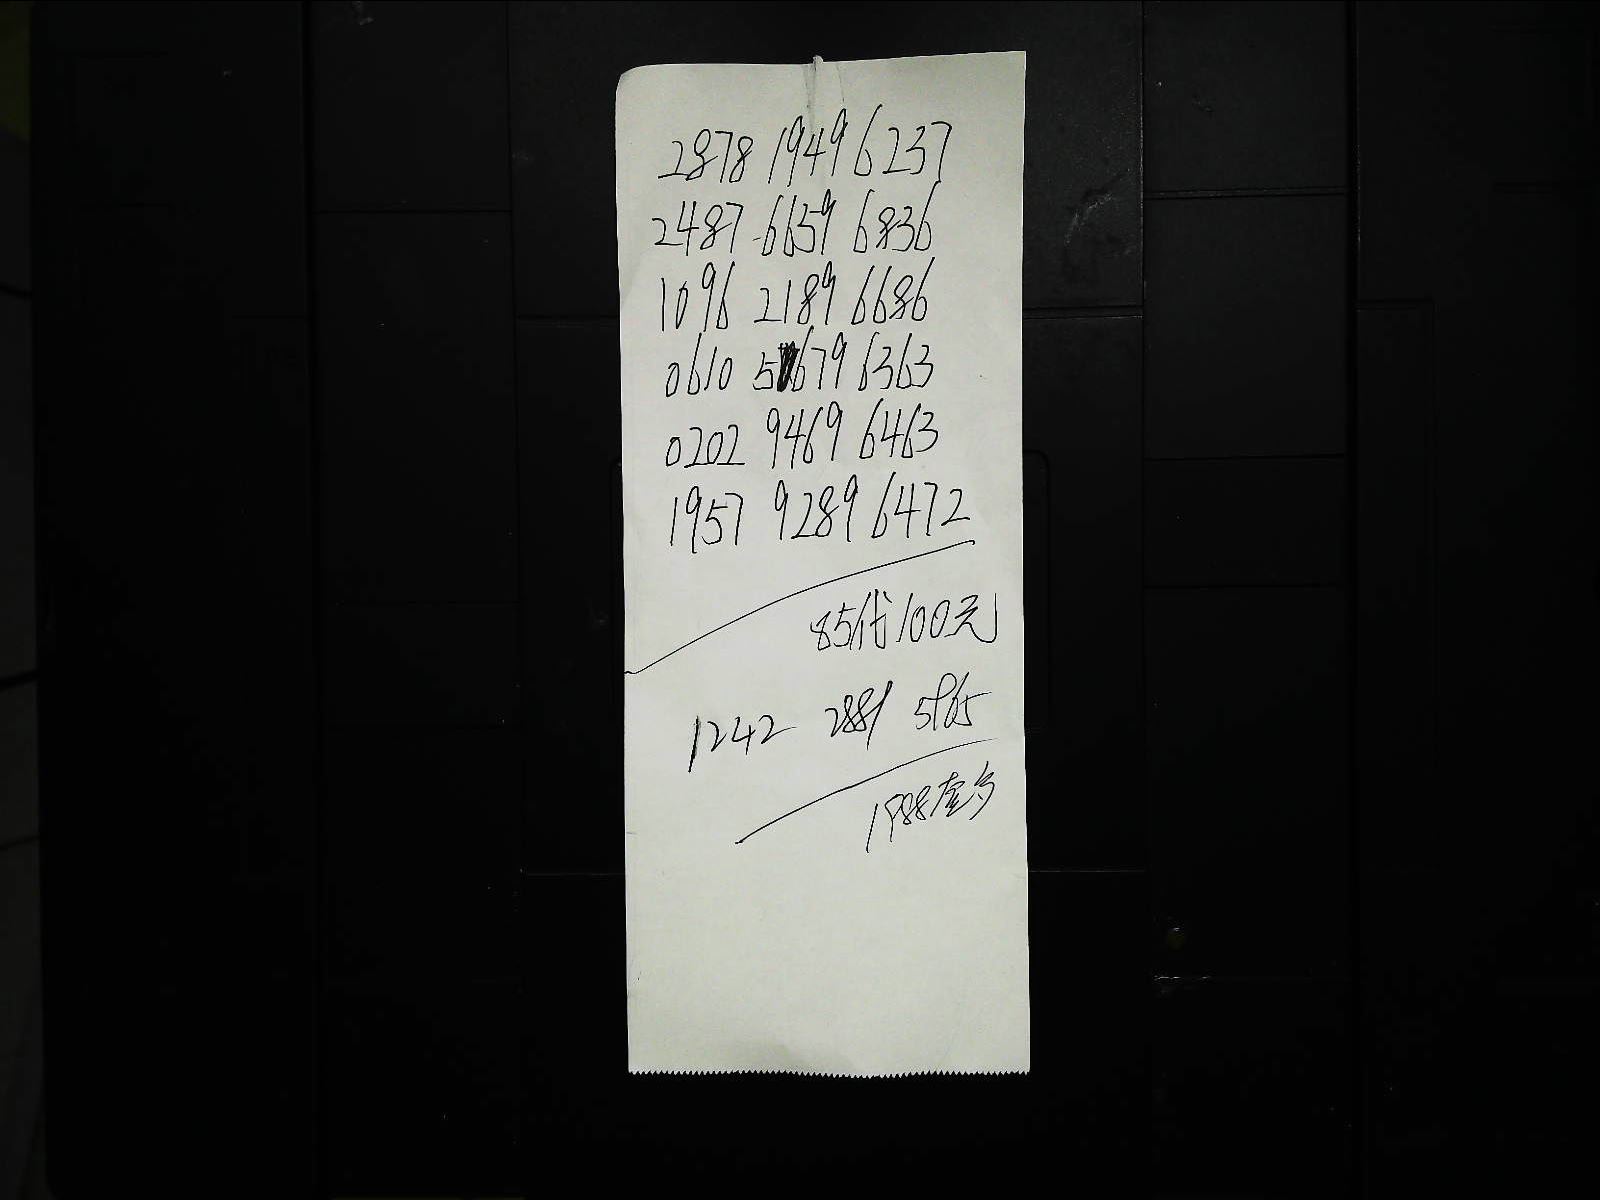 2878 1949 6237
2487 6659 6836
1096 2189 6686
0610 5679 6363
0202 9469 6463
1957 9289 6472
85代100元
1242 2881 5965
1988奎多